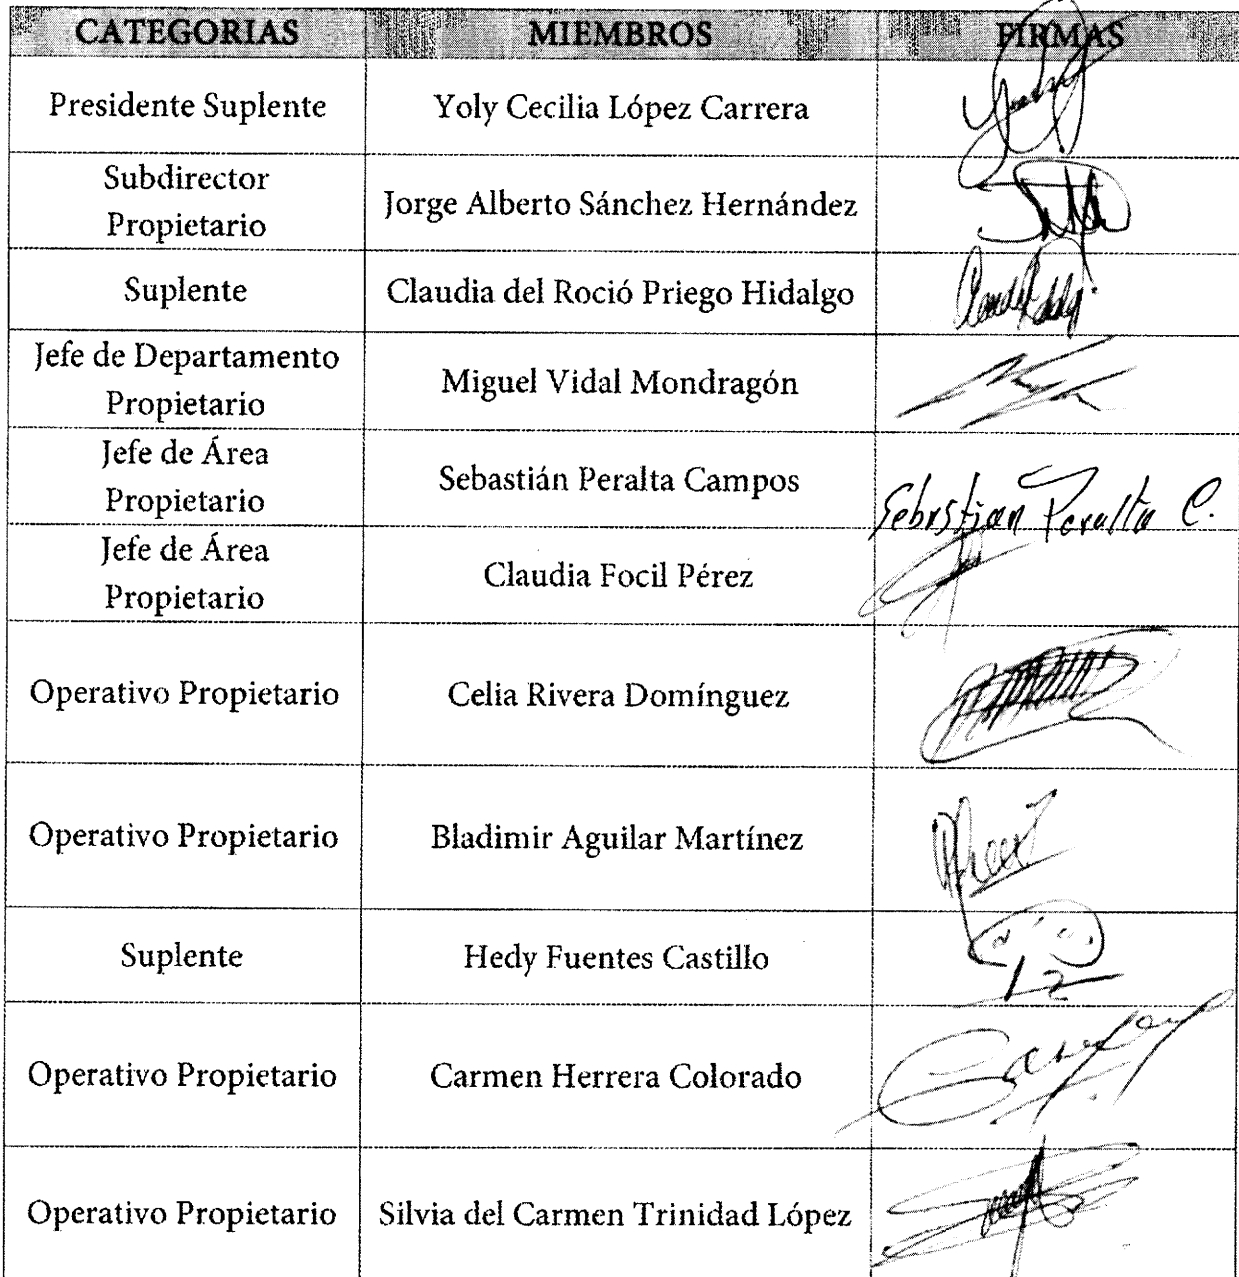 CATEGORIAS MIEMBROS FIRMAS
Presidente Suplente Yoly Cecilia López Carrera
Subdirector
Propietario
Jorge Alberto Sánchez Hernández
Suplente Claudia del Roció Priego Hidalgo
Jefe de Departamento
Propietario
Miguel Vidal Mondragón
Jefe de Área
Propietario
Sebastián Peralta Campos
Sebastian Peralta C.
Jefe de Área
Propietario
Claudia Focil Pérez
Operativo Propietario Celia Rivera Domínguez
Operativo Propietario Bladimir Aguilar Martínez
Suplente Hedy Fuentes Castillo
Operativo Propietario Carmen Herrera Colorado
Operativo Propietario Silvia del Carmen Trinidad López